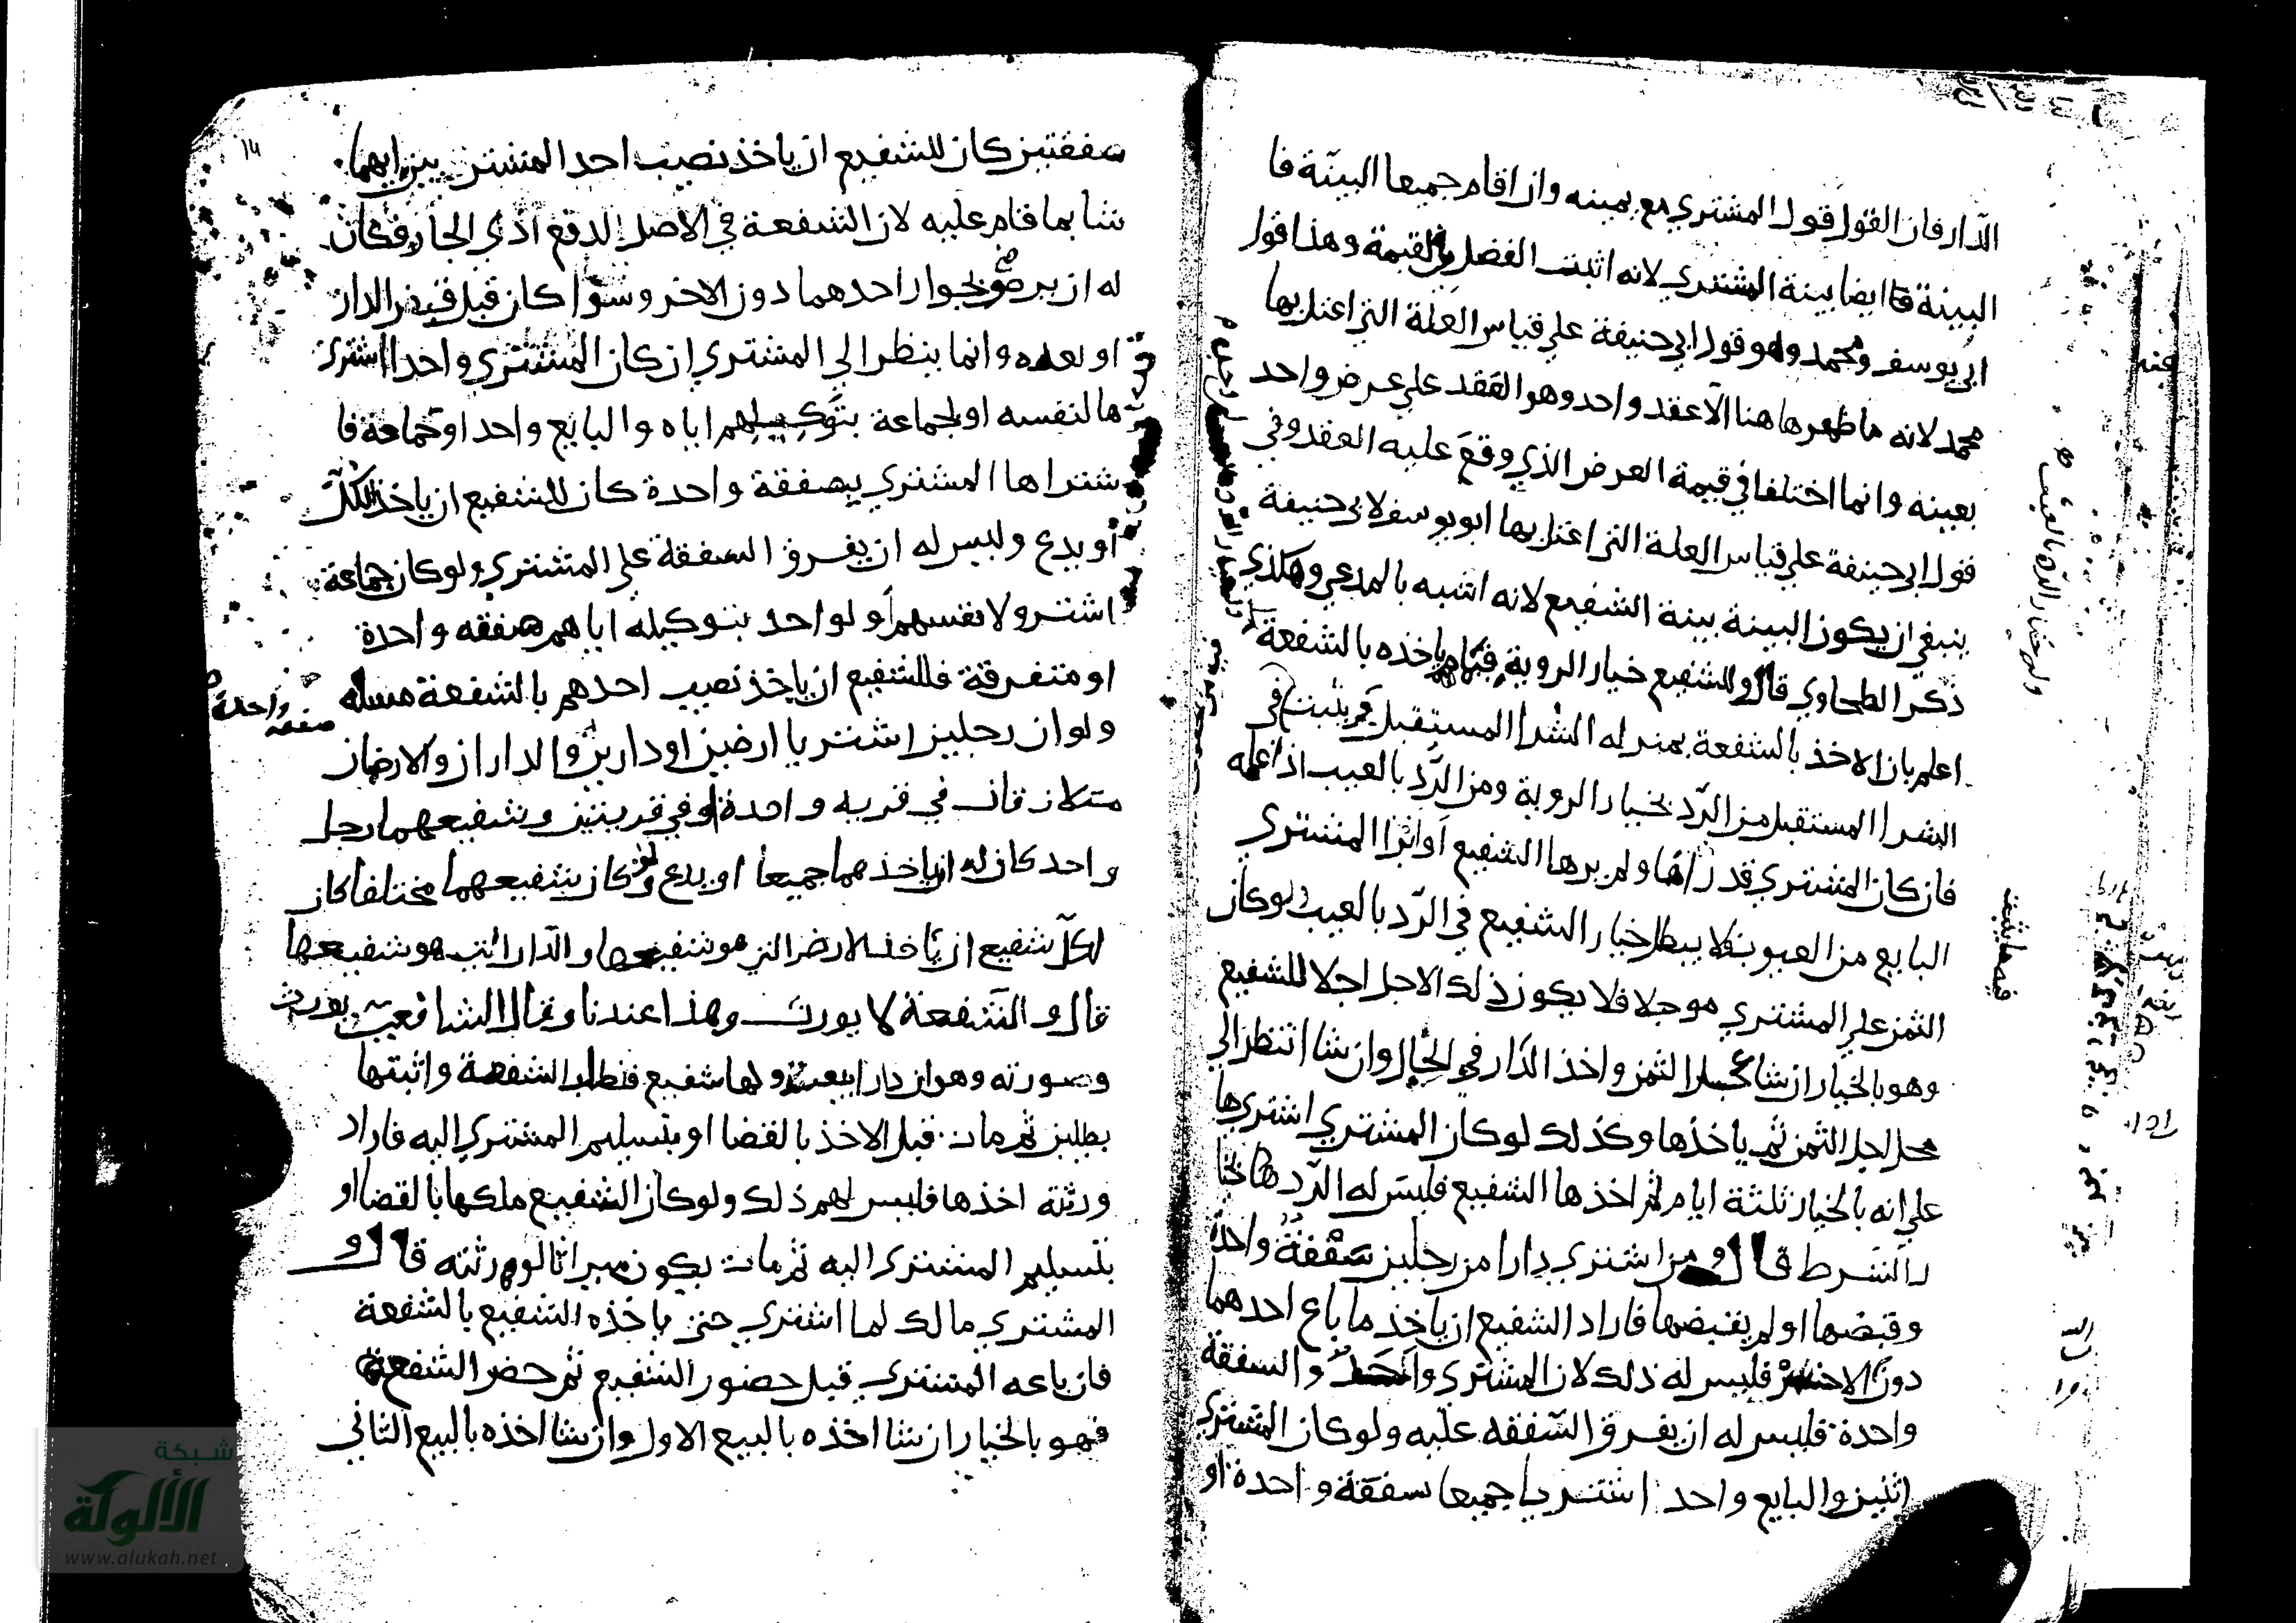 الدار فان القول قول المشتري مع يمينه وان اقام جميعا البينة فا
البينة ايضا بينة المشتري لانه اثبت الفضل في القيمة وهذا قول
ابي يوسف ومحمد وهو قول ابي حنيفة علي قياس العلة التي اعتل بها
محمد لانه ما ظهر هاهنا الا عقد واحد وهو العقد علي عرض واحد
بعينه وانما اختلفا في قيمة العرض الذي وقع عليه العقد وفي
قول ابي حنيفة علي قياس العلة التي اعتل بها ابو يوسف لابي حنيفة
ينبغي ان يكون البينة بينة الشفيع لانه اشبه بالمدعي وهكذي
ذكر الطحاوي قال وللشفيع خيار الروية فيما ياخذه بالشفعة
اعلم بان الاخذ بالشفعة بمنزلة الشرا المستقبل يثبت في
الشرا المستقبل من الرد بخيار الروية ومن الرد بالعيب اذا علمه
فان كان المشتري قد راها ولم يرها الشفيع او ابرا المشتري
البايع من العيوب فلا يبطل خيار الشفيع في الرد بالعيب ولو كان
الثمن علي المشتري موجلا فلا يكون ذلك الاجل اجلا للشفيع
وهو بالخيار ان شا عجل الثمن واخذ الدار في الحال وان شا انتظر الي
محل اجل الثمن ثم ياخذها وكذلك لو كان المشتري اشتريها
علي انه بالخيار ثلثة ايام ثم اخذها الشفيع فليس له الرد بخيا
را لشرط قال ومن اشتري دارا من رجلين سفقة واحدة
وقبضها او لم يقبضها فاراد الشفيع ان ياخذ ما باع احدهما
دون الاخر فليس له ذلك لان المشتري واحد والسفقة
واحدة فليس له ان يفرق السفقة عليه ولو كان المشتري
اثنين والبايع واحد اشتريا جميعا سفقة واحدة او
سفقتين كان للشفيع ان ياخذ نصيب احد المشتريين ايهما
شا بما قام عليه لان الشفعة في الاصل لدفع اذي الجار فكان
له ان يرضي بجوار احدهما دون الاخر وسوا كان قبل قبض الدار
او بعده وانما ينظر الي المشتري ان كان المشتري واحدا اشتري
ها لنفسه او لجماعة بتوكيلهم اياه والبايع واحد او جماعة فا
شتراها المشتري بصفقة واحدة كان للشفيع ان ياخذ الكل
او يدع وليس له ان يفرق السفقة علي المشتري ولو كان جماعة
اشترو لانفسهم او لواحد بتوكيله اياهم صفقه واحدة
او متفرقة فللشفيع ان ياخذ نصيب احدهم بالشفعة مسله
ولو ان رجلين اشتريا ارضين او دارين والداران والارضان
صفقه واحدة
متلازقان في قريه واحدة او في قريتين وشفيعهما رجل
واحد كان له ان ياخذهما جميعا او يدع ولو كان شفيعهما مختلفا كان
لكل شفيع ان ياخذ الارض التي هو شفيعها والدار التي هو شفيعها
قال والشفعة لا يورث وهذا عندنا وقال الشافعي يورث
وصورته وهو ان دارا بيعت ولها شفيع فطلب الشفعة واثبتها
بطلبين ثم مات قبل الاخذ بالقضا او بتسليم المشتري اليه فاراد
ورثته اخذها فليس لهم ذلك ولو كان الشفيع ملكها بالقضا او
بتسليم المشتري اليه ثم مات يكون ميراثا لورثته قال و
المشتري مالك لما اشتري حتي ياخذه الشفيع بالشفعة
فان باعه المشتري قبل حضور الشفيع ثم حضر الشفعة
فهو بالخيار ان شا اخذه بالبيع الاول وان شا اخذه بالبيع الثاني
شبكة
الألوكة
www.alukah.net